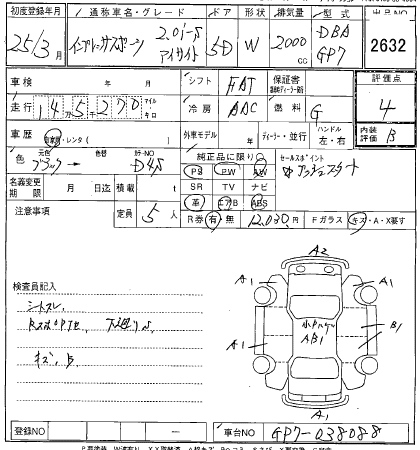 初度登録年月 通称車名・グレード ドア 形状 排気量 型式 出品NO
25/3月 インプレッサスポーツ 2.0i-S アイサイト 5D W 2000cc DBA GP7 2632
車検 年 月 シフト FAT 保証書 評価点
走行 145270 マイル キロ 冷房 AAC 燃料 G 4
車歴 自家用・レンタ( ) 外車モデル 年 ディーラー・並行 ハンドル 左・右 内装評価 B
色 元色 ブラック 色替 カラーNO D4S 純正品に限り○ セールスポイント
PS PW AW プッシュスタート
名義変更期限 月 日迄 積載 t SR TV ナビ
革 エアB ABS
注意事項 定員 5人 R券 有・無 12,030円 Fガラス キズ・A・X要す
検査員記入
シートスレ
下廻りS
キズ、B
A2
A1 A1
小キズヘコ
AB1
A1 B1
A1
登録NO 車台NO GP7-038088